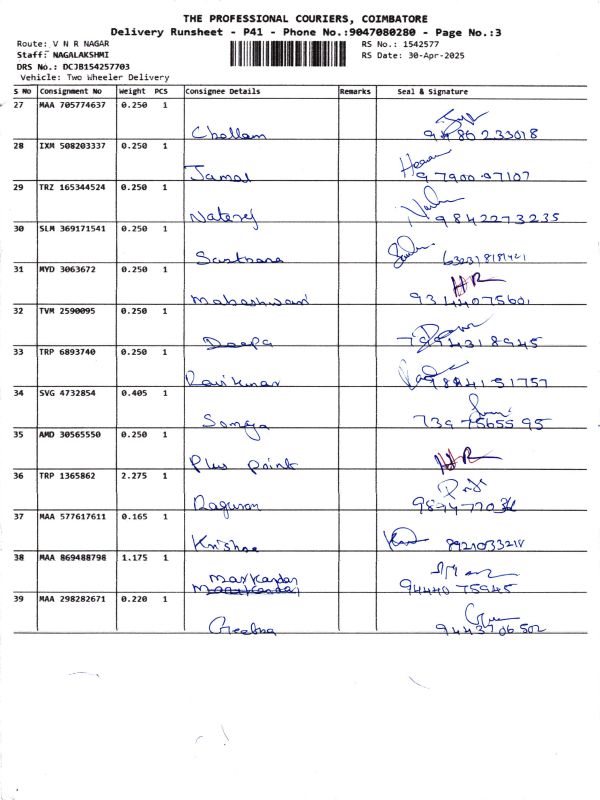 THE PROFESSIONAL COURIERS, COIMBATORE
Delivery Runsheet - P41 - Phone No.:9047080280 - Page No.:3
Route: V N R NAGAR
Staff: NAGALAKSHMI
DRS No.: DCJB154257703
Vehicle: Two Wheeler Delivery
RS No.: 1542577
RS Date: 30-Apr-2025
S No Consignment No Weight PCS Consignee Details Remarks Seal & Signature
27 MAA 705774637 0.250 1
Chellam
28 IXM 508203337 0.250 1
Jamal
29 TRZ 165344524 0.250 1
Nataraj 9842273235
30 SLM 369171541 0.250 1
31 MYD 3063672 0.250 1
HR
Maheshwari
32 TVM 2590095 0.250 1
Deepa
33 TRP 6893740 0.250 1
Ravikumar
34 SVG 4732854 0.405 1
Somya 7397565595
35 AMD 30565550 0.250 1
Plus point HR
36 TRP 1365862 2.275 1
Raguram
37 MAA 577617611 0.165 1
Krishna 8921033218
38 MAA 869488798 1.175 1
Markandar
9444075945
39 MAA 298282671 0.220 1
Geetha 9443706502